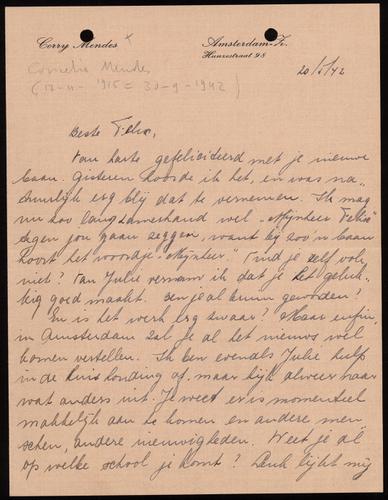 Corry Mendes x
Amsterdam-Z.
Hunzestraat 98
20/5/42
Cornelia Mendes
1915 = 30-9-1942)
Beste Felix,
Van harte gefeliciteerd met je nieuwe
baan. Gisteren hoorde ik het, en was na-
tuurlijk erg blij dat te vernemen. Ik mag
nu zoo langzamerhand wel „Mijnheer Felix"
tegen jou gaan zeggen, want bij zoo'n baan
hoort het woordje „Mijnheer". Vind je zelf ook
niet? Van Julie vernam ik dat je het geluk-
kig goed maakt. Ben je al bruin geworden?
En is het werk erg zwaar? Maar enfin,
in Amsterdam zal je al het nieuws wel
komen vertellen. Ik ben evenals Julie hulp
in de huishouding af, maar kijk alweer naar
wat anders uit. Je weet er is momenteel
makkelijk aan te komen en andere men-
schen, andere nieuwigheden. Weet je al
op welke school je komt? Leuk lijkt mij